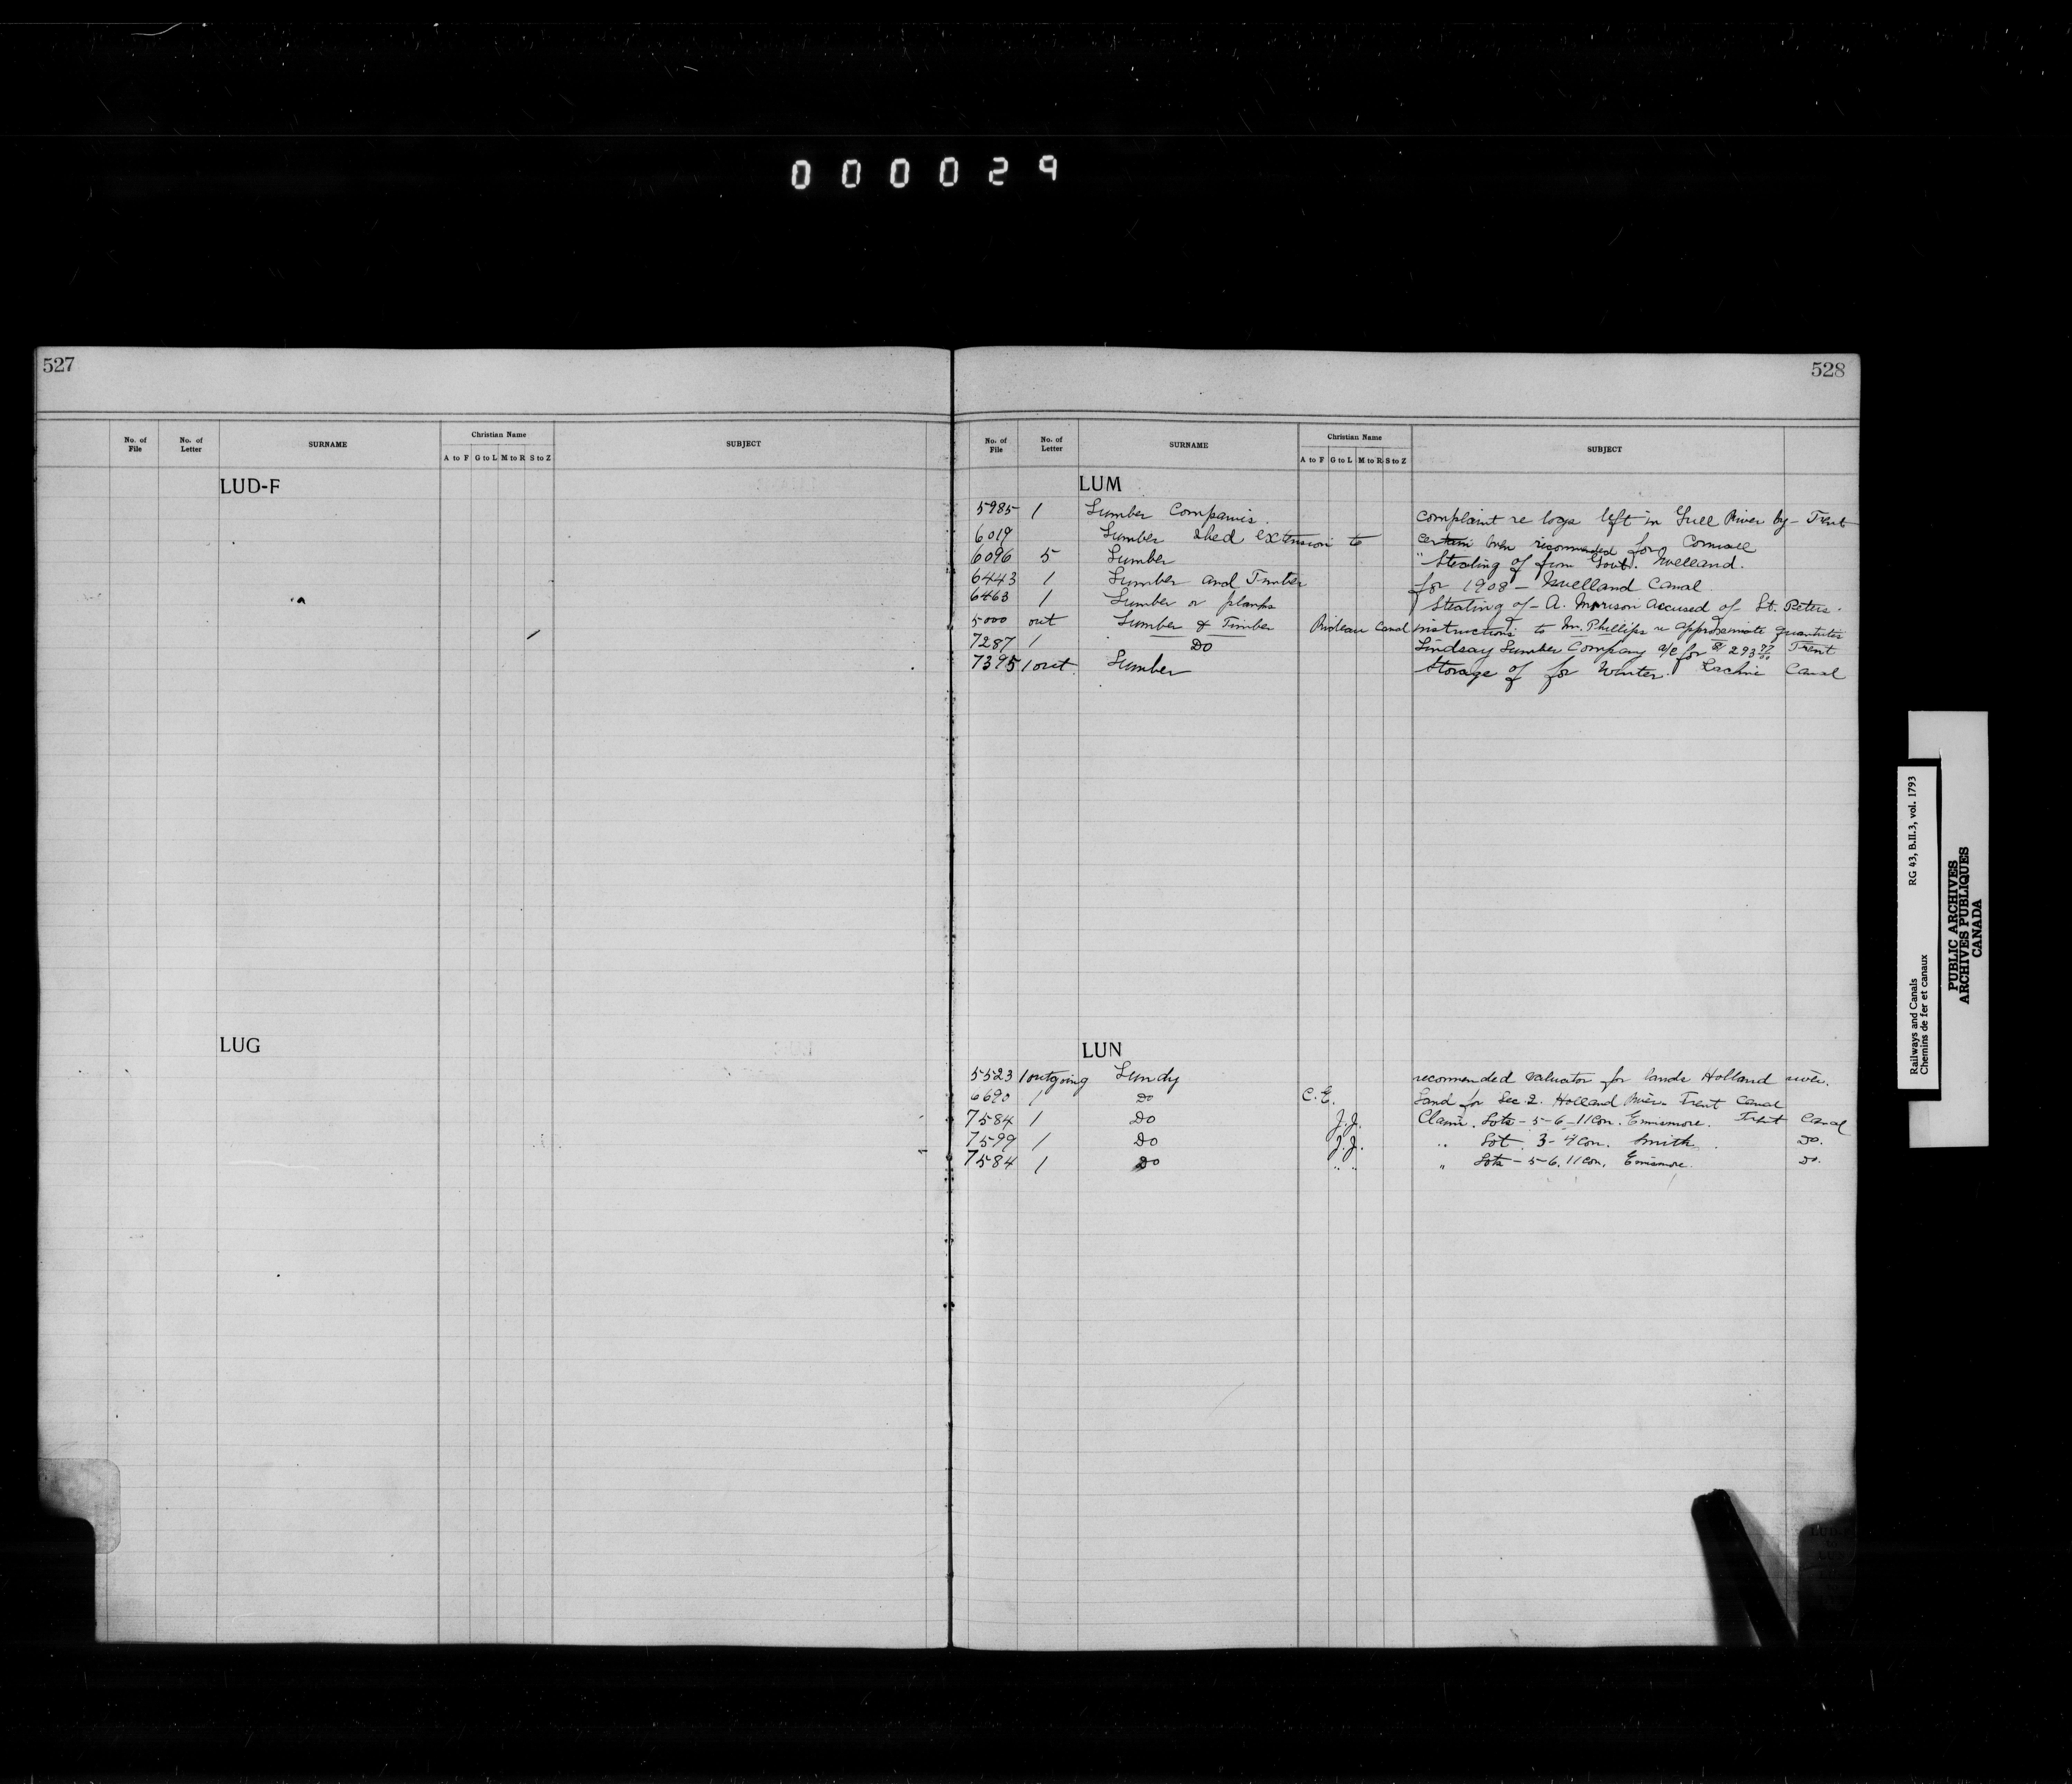 000029
527
No. of File No. of Letter SURNAME Christian Name A to F G to L M to R S to Z SUBJECT
LUD-F
LUG
528
No. of File No. of Letter SURNAME Christian Name A to F G to L M to R S to Z SUBJECT
LUM
5985 1 Lumber Companies. complaint re logs left in Gull River by - Trent
6019 Lumber shed extension to been recommended for Cornwall
6096 5 Lumber " Stealing of from Govt. Welland.
6443 1 Lumber and Timber for 1908 - Welland Canal.
6463 1 Lumber or planks Stealing of - A. Morison accused of St. Peters.
5000 out Lumber & Timber Rideau Canal instructions to Mr. Phillips re approximate quantities
7287 1 Do Lindsay Lumber Company a/c for $293 Trent
7395 1 out. Lumber Storage of for Winter. Lachine Canal
LUN
5523 1 outgoing Lundy recommended valuator for lands Holland river.
6690 1 Do C. E. Land for Sec 2. Holland River Trent Canal
7584 1 Do J.J. Claim. Lots - 5-6-11 Con. Ennismore. Trent Canal
7599 1 Do J.J. " Lot 3- 4 Con. Smith Do.
7584 1 Do " " " Lots - 5-6. 11 Con. Ennismore. Do.
Railways and Canals RG 43, B.II.3, vol. 1793
Chemins de fer et canaux
PUBLIC ARCHIVES
ARCHIVES PUBLIQUES
CANADA